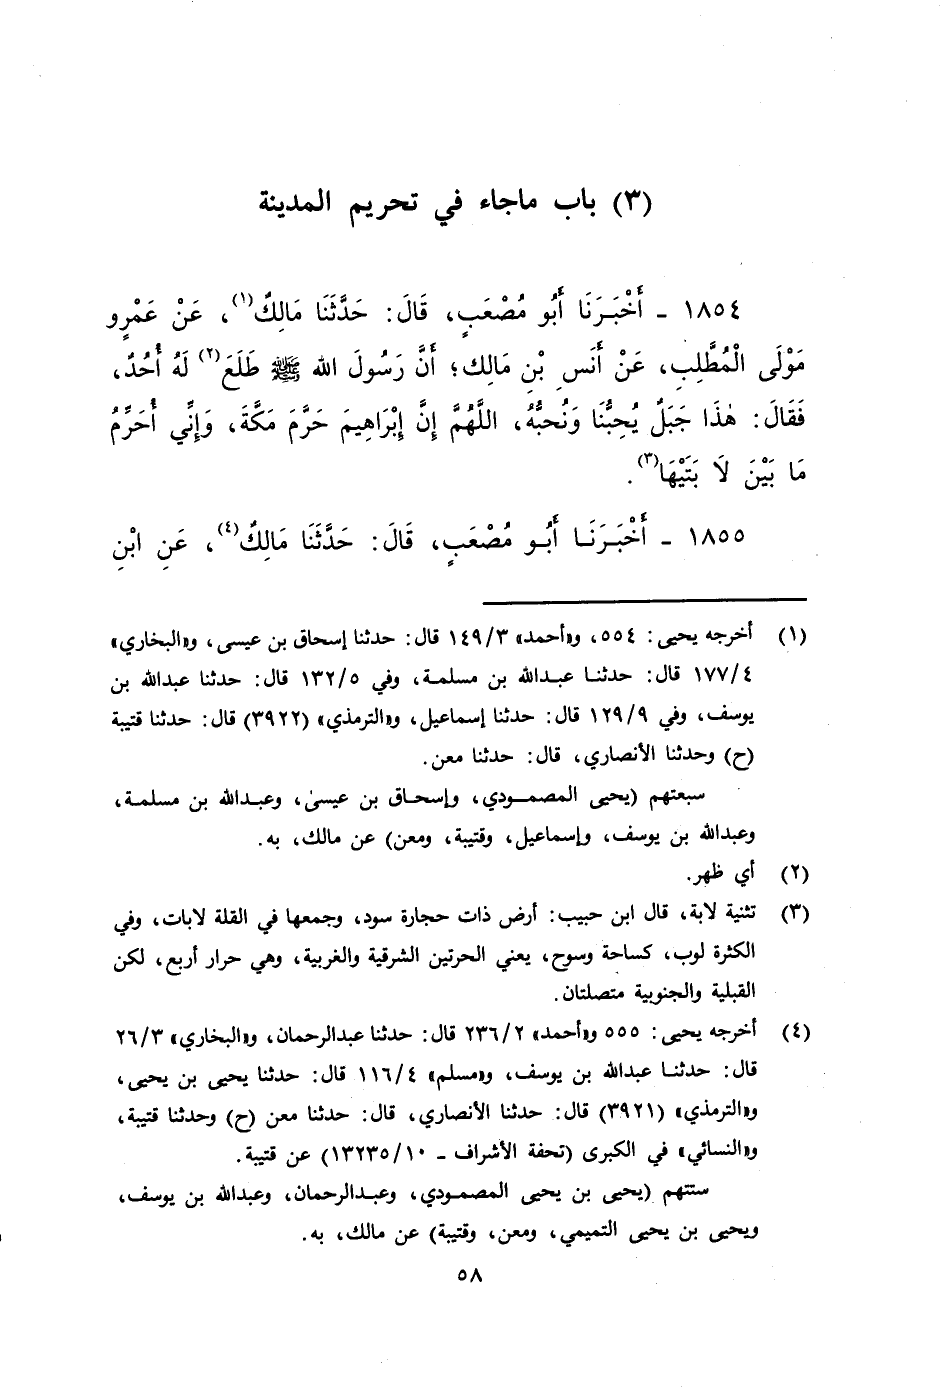 (٣) باب ماجاء في تحريم المدينة
١٨٥٤ ـ أَخْبَـرَنَا أَبُو مُصْعَبٍ، قَالَ: حَدَّثَنَا مَالِكٌ(١)، عَنْ عَمْرٍو
مَوْلَى الْمُطَّلِبِ، عَنْ أَنَسِ بْنِ مَالِك؛ أَنَّ رَسُولَ الله ﷺ طَلَعَ(٢) لَهُ أُحُدٌ،
فَقَالَ: هٰذَا جَبَلٌ يُحِبُّنَا وَنُحبُّهُ، اللَّهُمَّ إِنَّ إِبْرَاهِيمَ حَرَّمَ مَكَّةَ، وَإِنِّي أُحَرِّمُ
مَا بَيْنَ لَا بَتَيْهَا(٣).
١٨٥٥ ـ أَخْبَـرَنَـا أَبُـو مُصْعَبٍ، قَالَ: حَدَّثَنَا مَالِكٌ(٤)، عَنِ ابْنِ
(١) أخرجه يحيى: ٥٥٤، و«أحمد» ١٤٩/٣ قال: حدثنا إسحاق بن عيسى، و«البخاري»
١٧٧/٤ قال: حدثنـا عبـدالله بن مسلمـة، وفي ١٣٢/٥ قال: حدثنا عبدالله بن
يوسف، وفي ١٢٩/٩ قال: حدثنا إسماعيل، و«الترمذي» (٣٩٢٢) قال: حدثنا قتيبة
(ح) وحدثنا الأنصاري، قال: حدثنا معن.
سبعتهم (يحيى المصمـودي، وإسحـاق بن عيسىٰ، وعبـدالله بن مسلمـة،
وعبدالله بن يوسف، وإسماعيل، وقتيبة، ومعن) عن مالك، به.
(٢) أي ظهر.
(٣) تثنية لابة، قال ابن حبيب: أرض ذات حجارة سود، وجمعها في القلة لابات، وفي
الكثرة لوب، كساحة وسوح، يعني الحرتين الشرقية والغربية، وهي حرار أربع، لكن
القبلية والجنوبية متصلتان.
(٤) أخرجه يحيى: ٥٥٥ و«أحمد» ٢٣٦/٢ قال: حدثنا عبدالرحمان، و«البخاري» ٢٦/٣
قال: حدثنـا عبدالله بن يوسف، و«مسلم» ١١٦/٤ قال: حدثنا يحيى بن يحيى،
و«الترمذي» (٣٩٢١) قال: حدثنا الأنصاري، قال: حدثنا معن (ح) وحدثنا قتيبة،
و«النسائي» في الكبرى (تحفة الأشراف ـ ١٣٢٣٥/١٠) عن قتيبة.
ستتهم (يحيى بن يحيى المصمـودي، وعبـدالرحمان، وعبدالله بن يوسف،
ويحيى بن يحيى التميمي، ومعن، وقتيبة) عن مالك، به.
٥٨